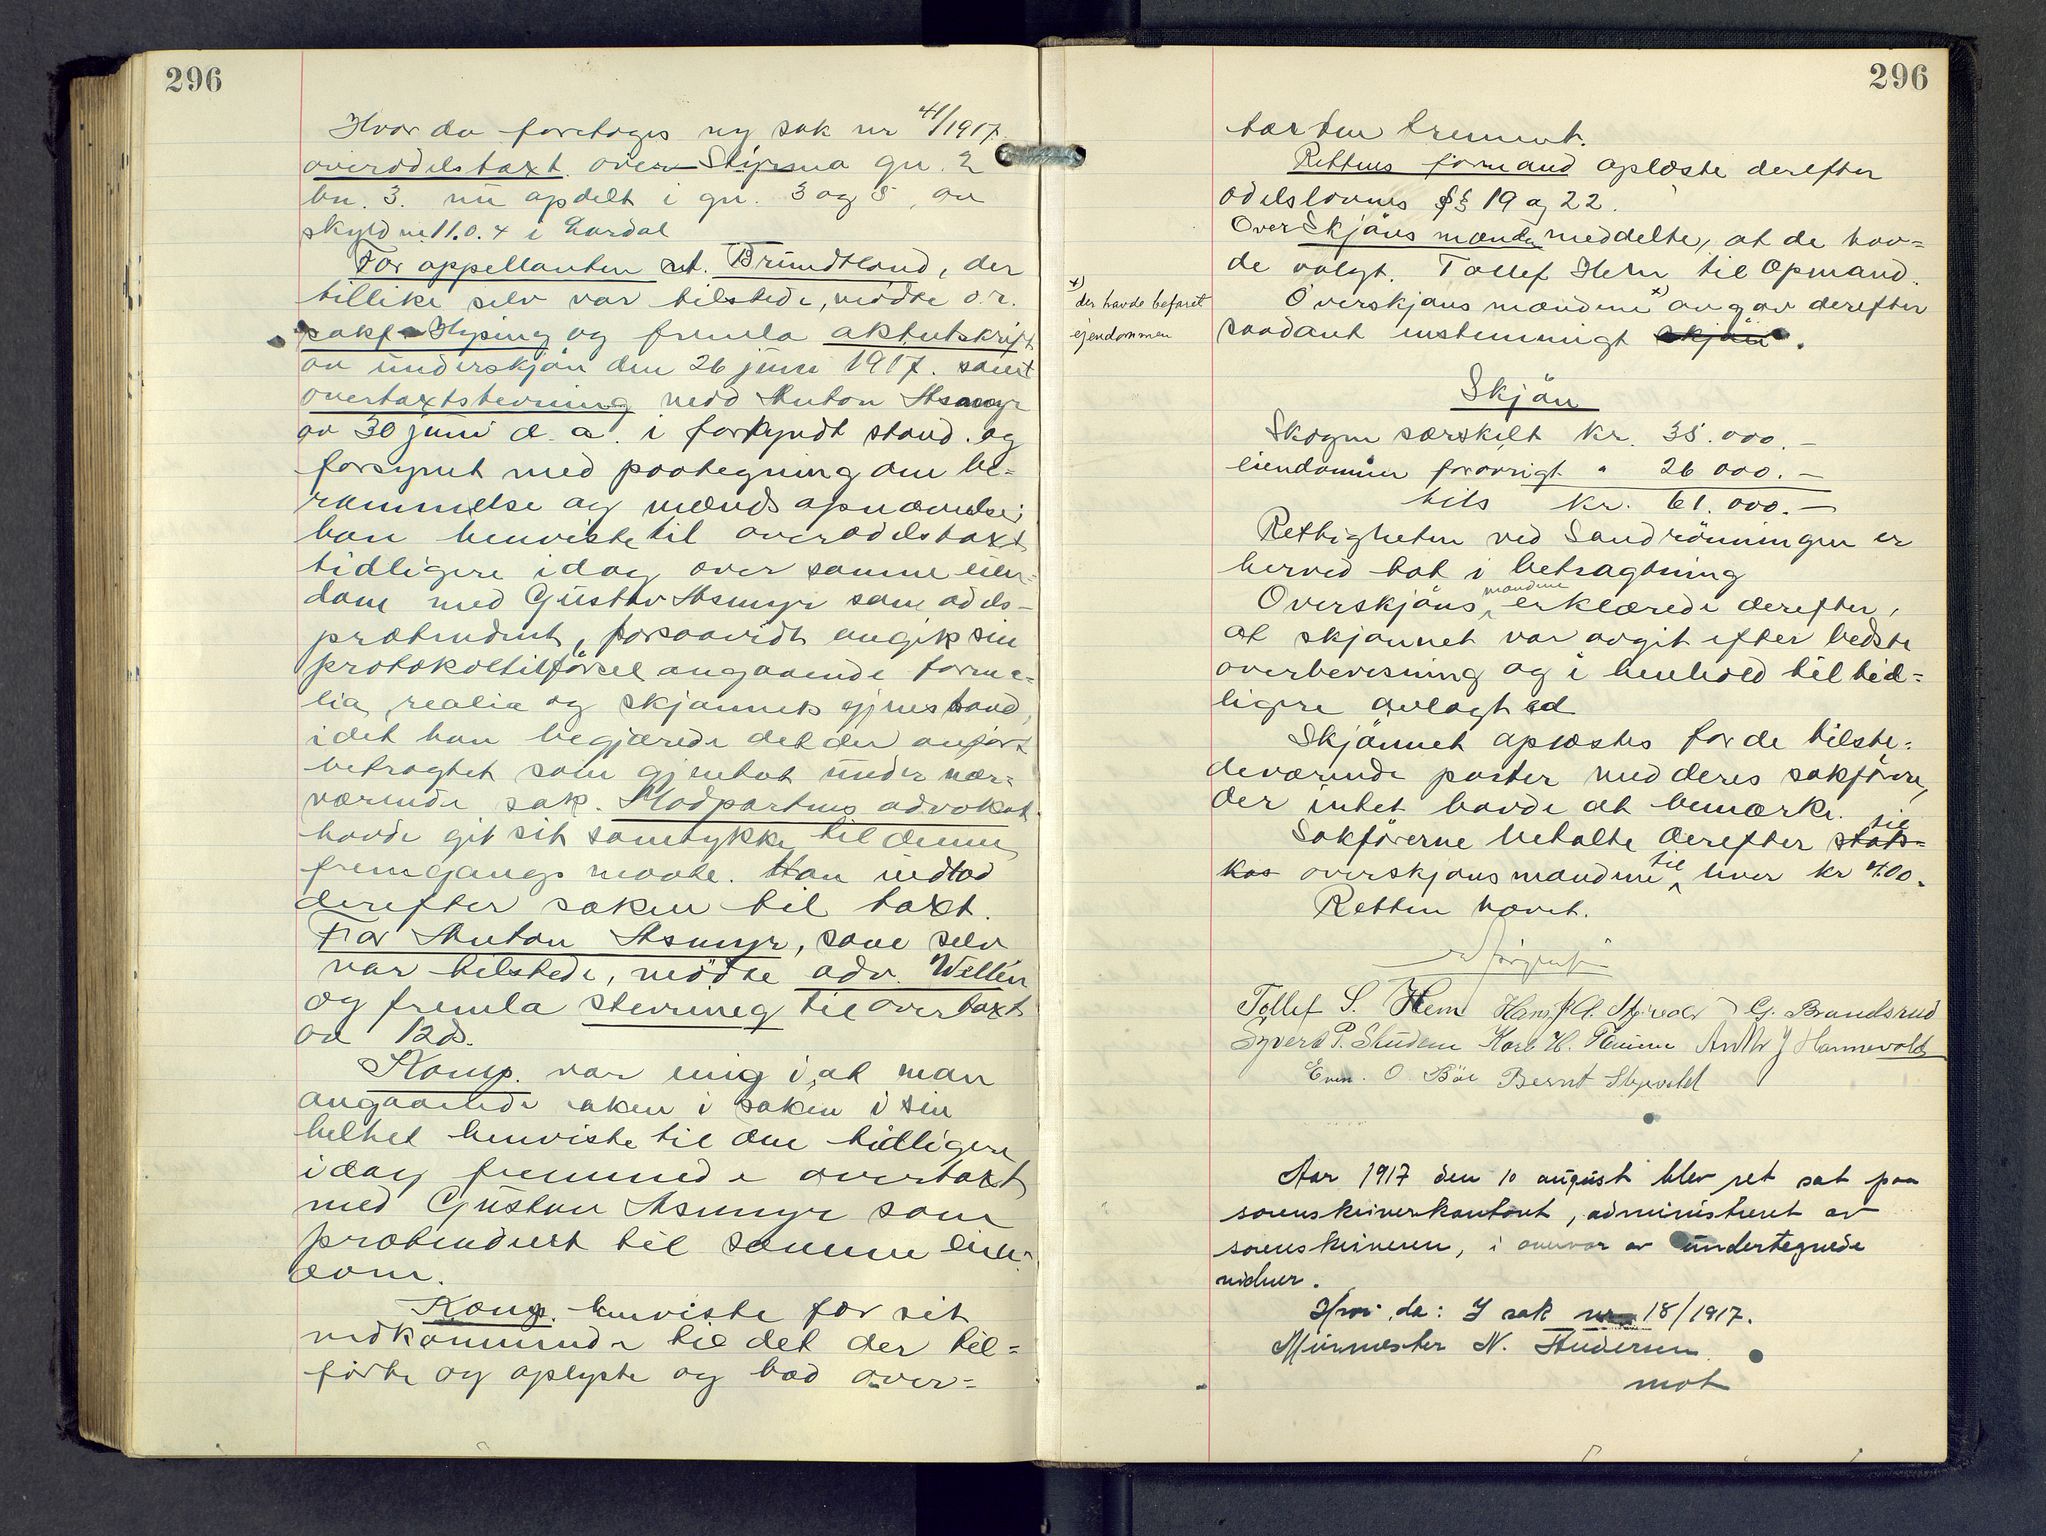 296
Hvor da foretoges ny sak nr 41/1917.
overodelstaxt over Styrsna gn. 2
bn. 3. nu opdelt i gn. 3 og 5, av
skyld m 11.0.4 i Lardal
For appellanten rt. Brundtland, der
tillike selv var tilstede, mødte o.r.
sakf Hyping og fremla aktutskrift
av underskjøn den 26 juni 1917. samt
overtaxtstevning med Anton Asmyr
av 30 juni d. a. i forkyndt stand og
forsynet med paategning om be-
rammelse og mænds opnævnelse;
han henviste til overodelstaxt
tidligere idag over samme eien-
dom med Gustav Asmyr som odels-
prætendent, forsaavidt angik sin
protokoltilførsel angaaende forma-
lia, realia og skjønnets gjenstand,
idet han begjærede det der anført
betragtet som gjentat under nær-
værende sak. Modpartens advokat
havde git sit samtykke til denne
fremgangsmaate. Han indlod
derefter saken til taxt.
For Anton Asmyr, som selv
var tilstede, mødte adv. Wellén
og fremla stevning til overtaxt
av 12ds.
Komp. var enig i, at man
angaaende saken i saken i sin
helhet henviste til den tidligere
idag fremmede overtaxt
med Gustav Asmyr som
prætendent til samme eien-
dom.
Komp. henviste for sit
vedkommende til det der til-
førte og oplyste og bad over-
296
taxten fremmet.
Rettens formand oplæste derefter
odelslovens §§ 19 og 22.
Overskjønsmændene meddelte, at de hav-
de valgt Tollef Hem til Opmand.
x) der havde befaret
ejendommen
Overskjønsmændene x) avgav derefter
saadant enstemmigt skjøn.
Skjøn
Skogen særskilt kr. 35.000.-
eiendommen forøvrigt " 26 000.-
tils kr. 61.000.-
Rettigheten ved Sandrønningen er
herved tat i betragtning
Overskjønsmændene erklærede derefter,
at skjønnet var avgit efter bedste
overbevisning og i henhold til tid-
ligere avlagt ed
Skjønnet oplæstes for de tilste-
deværende parter med deres sakførere,
der intet havde at bemærke.
Sakførerne betalte derefter til stats-
kas overskjønsmændene til hver kr 4.00.
Retten hævet.
Tollef S. Hem Hans G. Brandsrud
Syvert P. Studem Karl H. Anth J Hannevold
Even O. Bøe Bernt Skjeveld
Aar 1917 den 10 august blev ret sat paa
sorenskriverkontoret, administreret av
sorenskriveren, i overvær av undertegnede
vidner.
Hvor da: I sak nr 18/1917.
Murmester N. Andersen
mot